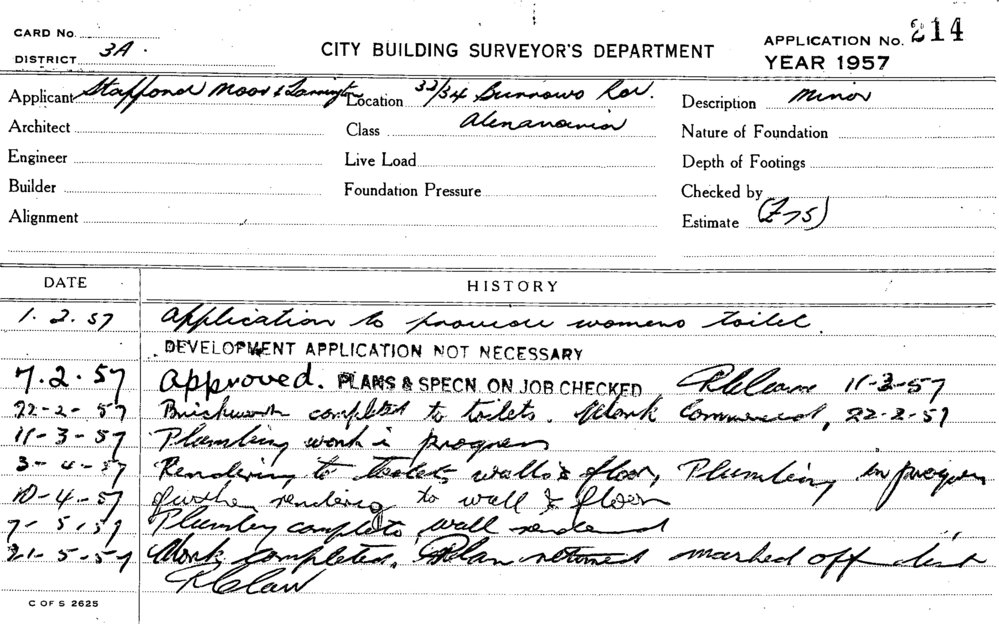 CARD No.
DISTRICT 3A.
CITY BUILDING SURVEYOR'S DEPARTMENT
APPLICATION No. 214
YEAR 1957
Applicant Stafford Moor & Lannington Location 33/34 Burrows Rd. Description minor
Architect Class Alexandria Nature of Foundation
Engineer Live Load Depth of Footings
Builder Foundation Pressure Checked by
Alignment Estimate (£75)
DATE HISTORY
1.2.57 Application to provide womens toilet.
DEVELOPMENT APPLICATION NOT NECESSARY
7.2.57 Approved. PLANS & SPECN. ON JOB CHECKED 11-3-57
22-2-57 Brickwork completed to toilets. Work Commenced, 22-2-57
11-3-57 Plumbing work in progress
3-4-57 Rendering to toilets walls & floor, Plumbing in progress
10-4-57 further rendering to wall & floor
7-5-57 Plumbing complete, wall rendered
21-5-57 Work completed. Plan returned marked off list
C OF S 2625